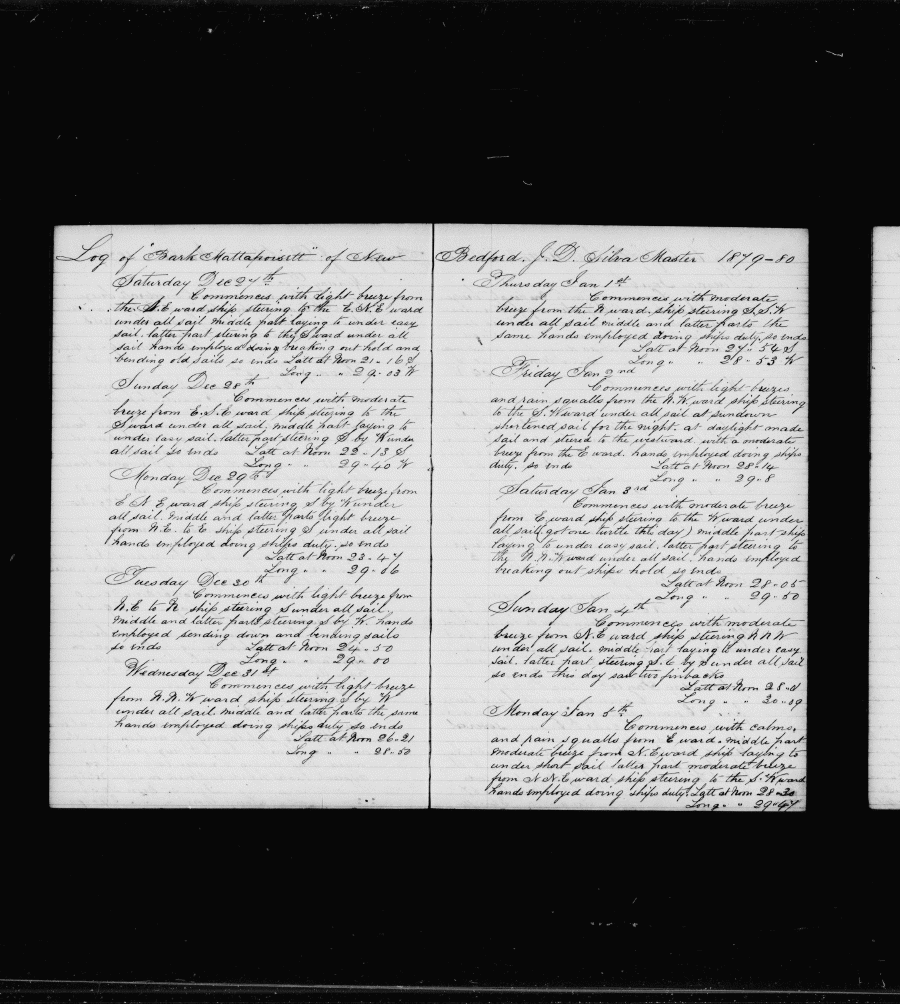 Log of "Bark Mattapoisett" of New
Saturday Dec 27th
Commences with light breeze from
the S.E ward ship steering to the E.N.E ward
under all sail middle part laying to under easy
sail. latter part steering to the S ward under all
sail hands employed doing breaking out hold and
bending old sails so ends Latt at Noon 21-16 S
Long " " 29-03 W
Sunday Dec 28th
Commences with moderate
breeze from E.S.E ward ship steering to the
S ward under all sail. middle part laying to
under easy sail. latter part steering S by W under
all sail so ends Latt at Noon 22-13 S
Long " " 29-40 W
Monday Dec 29th
Commences with light breeze from
E N E ward ship steering S by W under
all sail. middle and latter parts light breeze
from N.E. to E ship steering S under all sail
hands employed doing ships duty. so ends
Latt at Noon 23-47
Long " " 29-06
Tuesday Dec 30th
Commences with light breeze from
N.E to N ship steering S under all sail.
middle and latter parts steering S by W. hands
employed sending down and bending sails
so ends Latt at Noon 24-50
Long " " 29-00
Wednesday Dec 31st
Commences with light breeze
from N.N.W ward ship steering S by W
under all sail. middle and latter parts the same
hands employed doing ships duty so ends
Latt at Noon 26-21
Long " " 28-50
Bedford. J. D. Silva Master 1879-80
Thursday Jan 1st
Commences with moderate
breeze from the N ward. ship steering S.S.W
under all sail middle and latter parts the
same hands employed doing ships duty, so ends
Latt at Noon 27-54 S
Long " " 28-53 W
Friday Jan 2nd
Commences with light breezes
and rain squalls from the N.W. ward ship steering
to the S.W ward under all sail at sundown
shortened sail for the night. at daylight made
sail and steered to the westward with a moderate
breeze from the E ward. hands employed doing ships
duty. so ends Latt at Noon 28-14
Long " " 29-8
Saturday Jan 3rd
Commences with moderate breeze
from E ward ship steering to the W ward under
all sail (got one turtle this day) middle part ship
laying to under easy sail. latter part steering to
the N.N.W ward under all sail. hands employed
breaking out ships hold so ends
Latt at Noon 28-05
Long " " 29-50
Sunday Jan 4th
Commences with moderate
breeze from N.E ward ship steering N N W
under all sail. middle part laying to under easy
sail. latter part steering S.E by S under all sail
so ends this day saw two finbacks
Latt at Noon 28-
Long " " 30-09
Monday Jan 5th
Commences with calms,
and rain squalls from E ward. middle part
moderate breeze from N.E ward ship laying to
under short sail latter part moderate breeze
from N N.E ward ship steering to the S.W ward
hands employed doing ships duty. Latt at Noon 28-30
Long " " 29-47